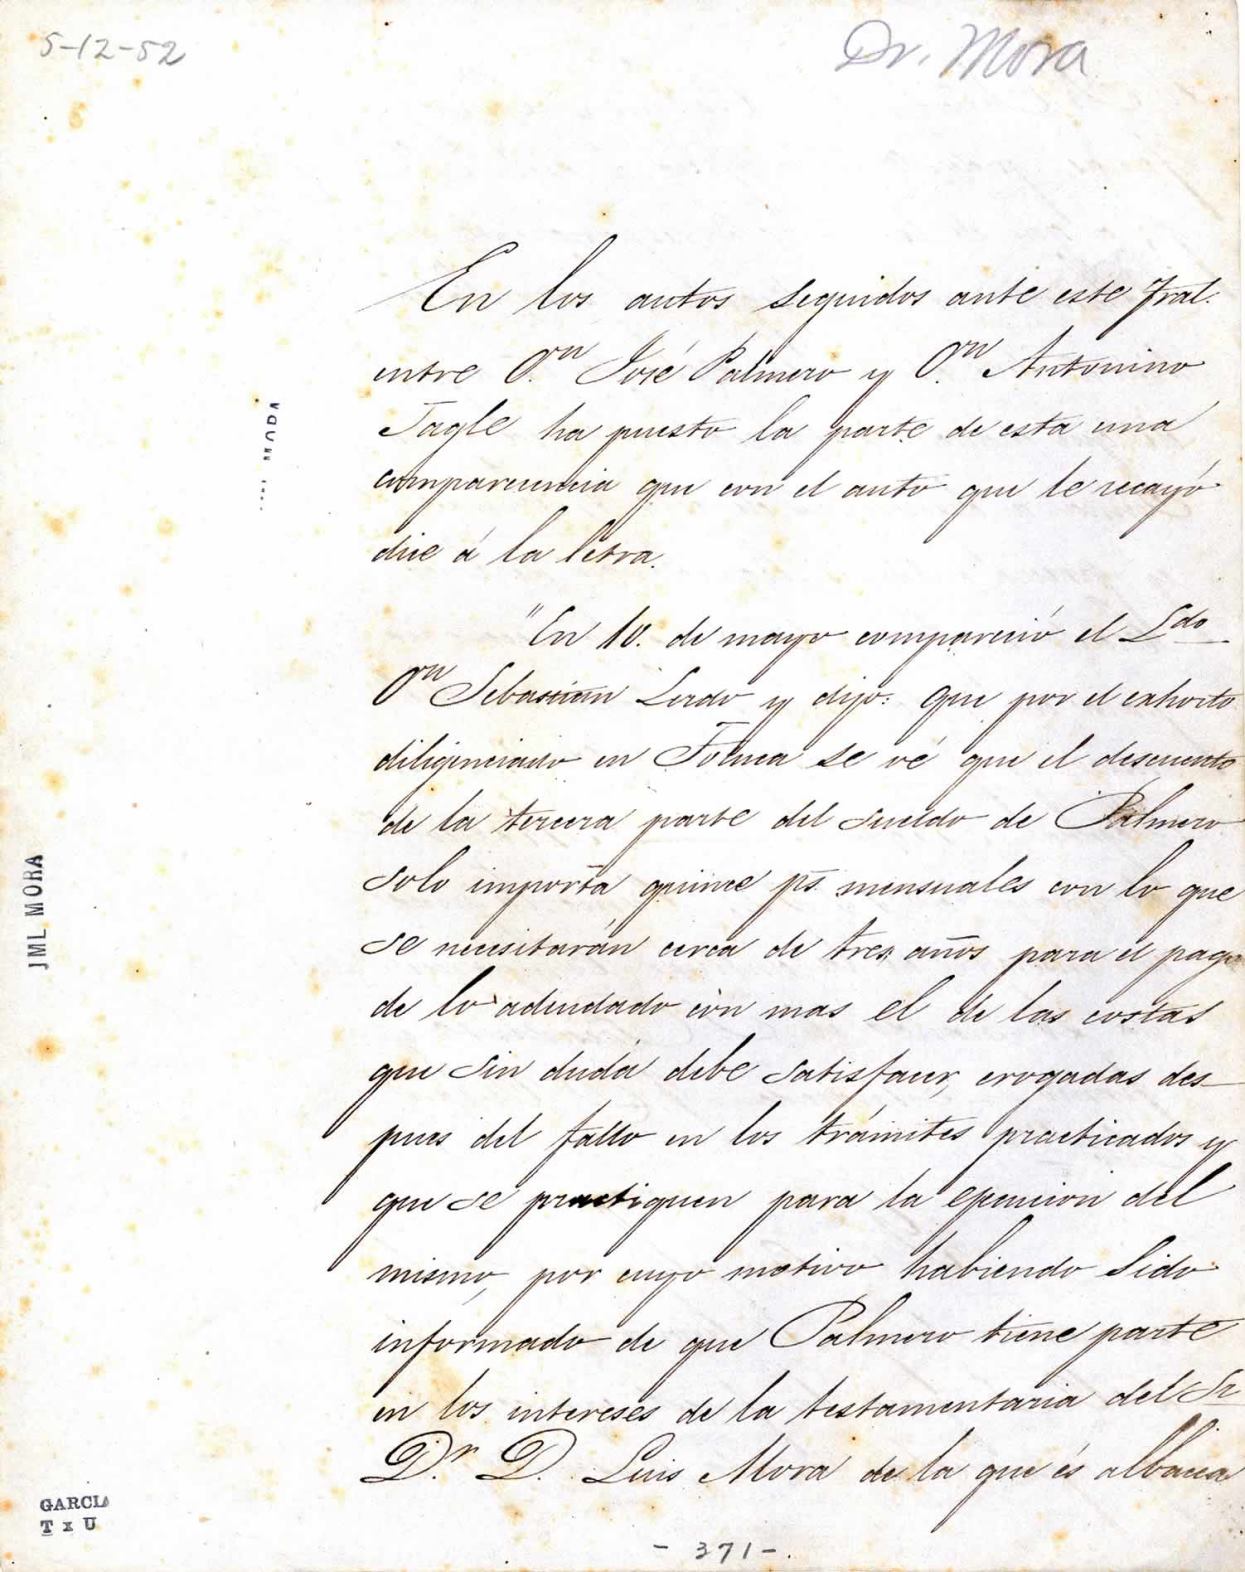 5-12-52
Dr. Mora
En los autos seguidos ante este Tral.
entre D.ⁿ José Palmero y D.ⁿ Antonino
Tagle ha puesto la parte de esta una
comparecencia que con el auto que le recayó
dice á la letra.
"En 10. de mayo compareció el Ldo
Dn Sebastian Lerdo y dijo: que por el exhorto
diligenciado en Toluca se vé que el descuento
de la tercera parte del sueldo de Palmero
solo importa quince ps. mensuales con lo que
se necesitarán cerca de tres años para el pago
de lo adeudado con mas el de las costas
que sin duda debe satisfacer, erogadas des-
pues del fallo en los trámites practicados y
que se practiquen para la ejecucion del
mismo, por cuyo motivo habiendo sido
informado de que Palmero tiene parte
en los intereses de la testamentaria del Sr
D.r D. Luis Mora de la que és albacea
MORA
JML MORA
GARCIA
T x U
- 371 -.